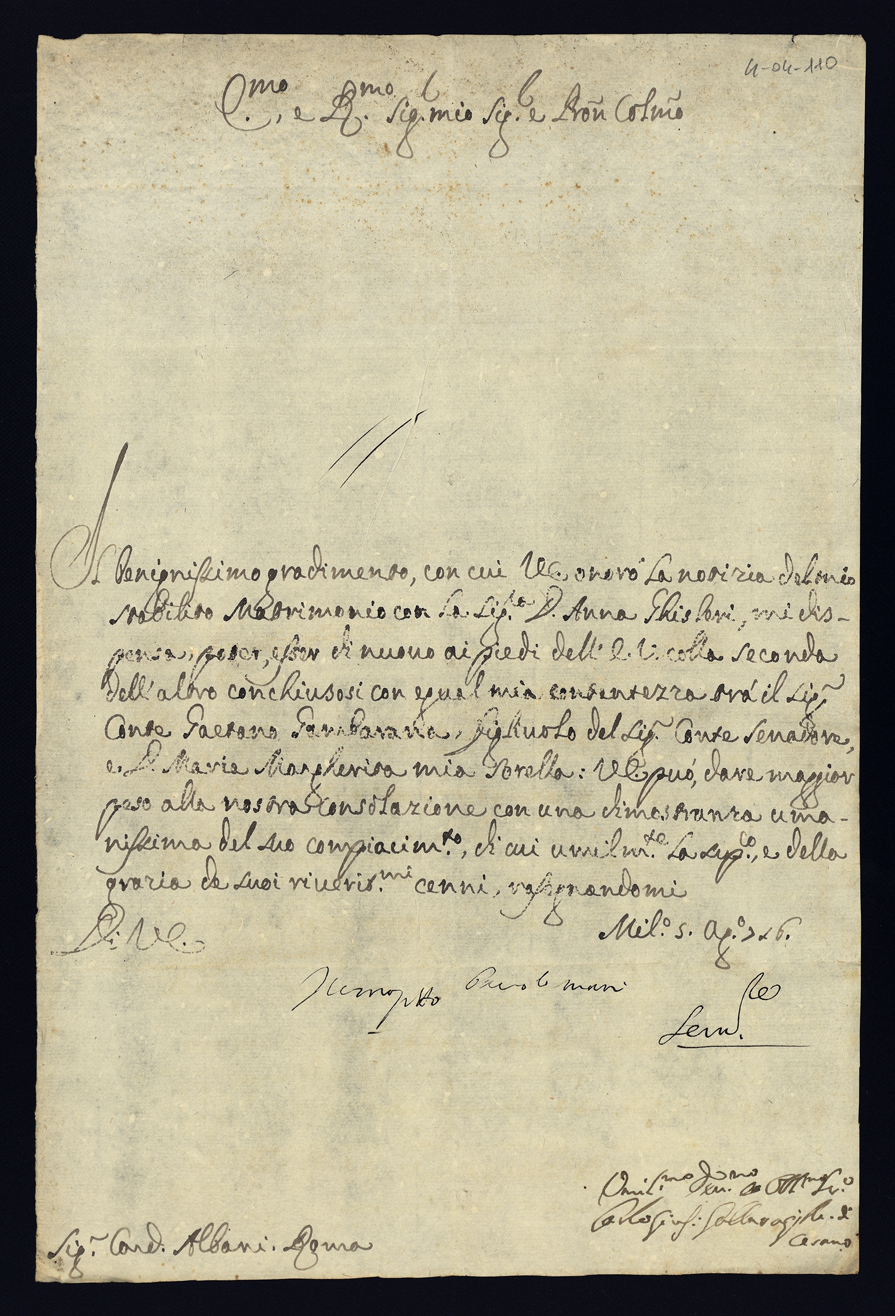 4-04-110
E.mo, e R.mo Sig.r mio Sig.r e Pron Colmo
Il benignissimo gradimento, con cui V.E. onorò la notizia del mio
stabilito Matrimonio con la Sig.ra D. Anna Ghisleri, mi dis-
pensa, poter, esser di nuovo ai piedi dell'E.V. colla seconda
dell'altro conchiusosi con egual mia contentezza trà il Sig.r
Conte Gaetano Gambarana, figliuolo del Sig.r Conte Senatore,
e D. Maria Margherita mia Sorella: V.E. può, dare maggior
peso alla nostra consolazione con una dimostranza uma-
nissima del suo compiacim.to, di cui umilm.te la sup.co, e della
grazia de suoi riveris.mi cenni, rassegnandomi
Di V.E.
Mil.o 5. Ag.o 726.
Sig.r Card. Albani. Roma
Umil.mo Dev.mo et Obb.mo Ser.
di
Cesano